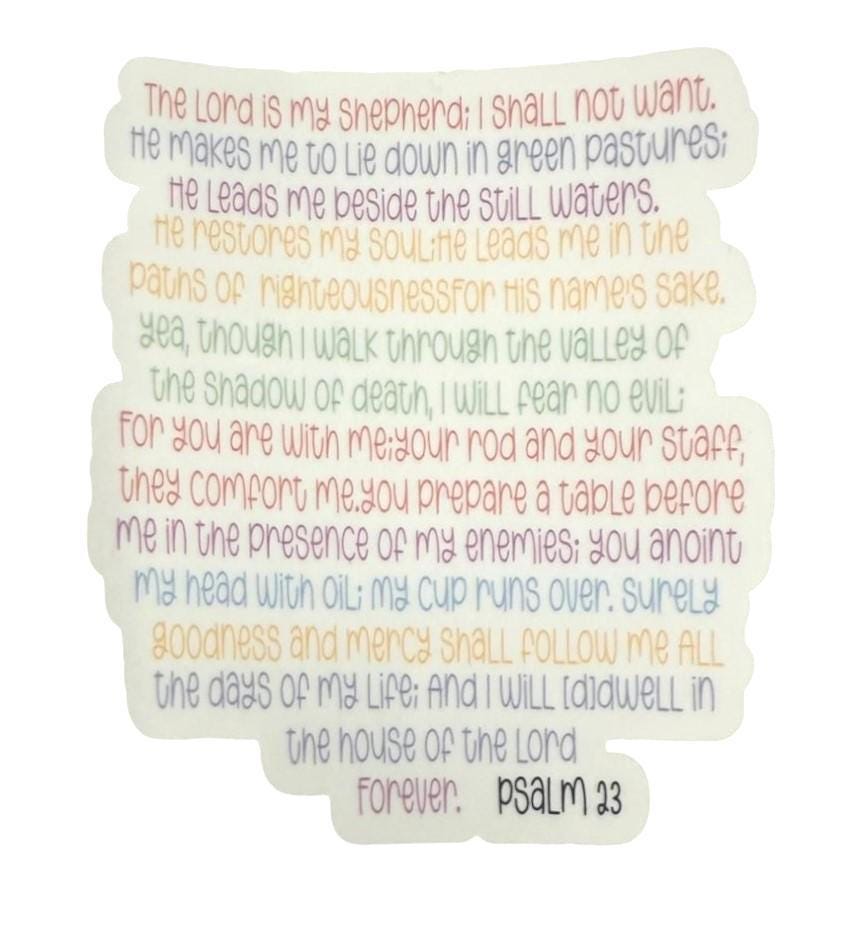 The Lord is my shepherd; I shall not want.
He makes me to lie down in green pastures;
He leads me beside the still waters.
He restores my soul;He leads me in the
paths of righteousnessFor His name's sake.
yea, though I walk through the valley of
the shadow of death, I will fear no evil;
For you are with me;your rod and your staff,
they comfort me.you prepare a table before
me in the presence of my enemies; you anoint
my head with oil; my cup runs over. Surely
goodness and mercy shall follow me All
the days of my life; And I will [d]dwell in
the house of the Lord
Forever. Psalm 23